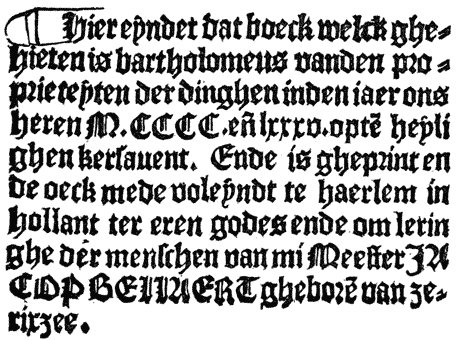 Hier eyndet dat boeck welck ghe-
hieten is bartholomeus vanden pro-
prieteyten der dinghen inden iaer ons
heren M.CCCC.eñ lxxxv. optẽ heyli
ghen kersauent. Ende is gheprint en
de oeck mede voleyndt te haerlem in
hollant ter eren godes ende om lerin
ghe der menschen van mi Meester JA
COP BELLAERT gheborẽ van ze-
rixzee.